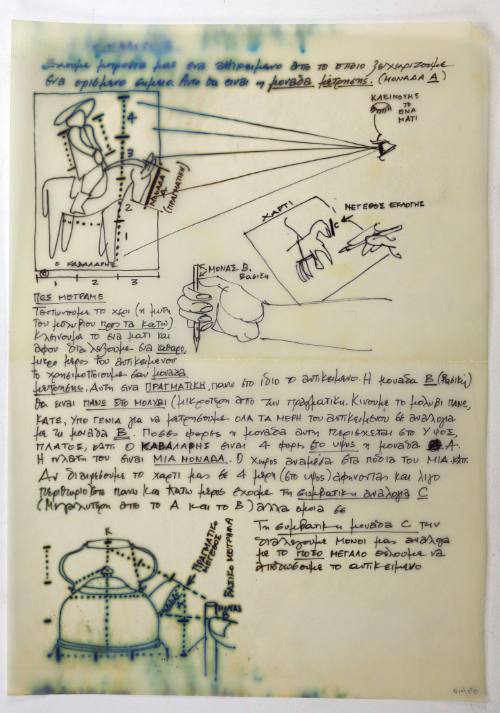 Εχουμε μπροστα μας ενα αντικειμενο απο το οποιο ξεχωριζουμε
ενα ορισμενο σημειο. Αυτο θα ειναι η μοναδα μετρησης. (ΜΟΝΑΔΑ Α)
ΚΛΕΙΝΟΥΜΕ
ΤΟ
ΕΝΑ
ΜΑΤΙ
4
3
2
1
ΜΟΝΑΔΑ
Α
(ΠΡΑΓΜΑΤΙΚΗ)
Ο ΚΑΒΑΛΑΡΗΣ
1 2 3
ΧΑΡΤΙ
ΜΕΓΕΘΟΣ ΕΚΛΟΓΗΣ
C
ΜΟΝΑΣ. Β.
ΒΑΣΙΚΗ
ΠΩΣ ΜΕΤΡΑΜΕ
Τεντωνουμε το χερι (η μυτη
του μολυβιου προς τα κατω)
Κλεινουμε το ενα ματι και
αφου διαλεξουμε ενα καθαρο
μερος του αντικειμενου
το χρησιμοποιουμε σαν μοναδα
μετρησης. Αυτη ειναι ΠΡΑΓΜΑΤΙΚΗ, πανω στο ιδιο το αντικειμενο. Η μοναδα Β (Βασικη)
θα ειναι ΠΑΝΩ ΣΤΟ ΜΟΛΥΒΙ (μικροτερη απο την πραγματικη. Κινουμε το μολυβι ΠΑΝΩ,
ΚΑΤΩ, για να μετρησουμε ΟΛΑ ΤΑ ΜΕΡΗ του αντικειμενου σε αναλογια
με τη μοναδα Β. Ποσες φορες η μοναδα αυτη περιεχεται στο ΥΨΟΣ,
ΠΛΑΤΟΣ, κ.λπ. Ο ΚΑΒΑΛΛΑΡΗΣ ειναι 4 φορες στο υψος η μοναδα Α.
Η πλατη του ειναι ΜΙΑ ΜΟΝΑΔΑ. Ο χωρος αναμεσα στα ποδια του ΜΙΑ κ.λπ.
Αν διαιρεσουμε το χαρτι μας σε 4 μερη (στο υψος) αφηνοντας και λιγο
περιθωριο πανω και κατω μερος εχουμε τη συμβατικη αναλογια C
(Μεγαλυτερη απο το Α και το Β) αλλα ομοια σε
Τη συμβατικη μοναδα C την
διαλεγουμε ΜΟΝΟΙ μας αναλογα
με το ΠΟΣΟ ΜΕΓΑΛΟ θελουμε να
αποδωσουμε το αντικειμενο
Κ
ΠΡΑΓΜΑΤΙΚΟ
ΜΕΓΕΘΟΣ
ΒΑΣΙΚΟ ΜΕΤΡΗΜΑ
ΜΟΝΑΣ